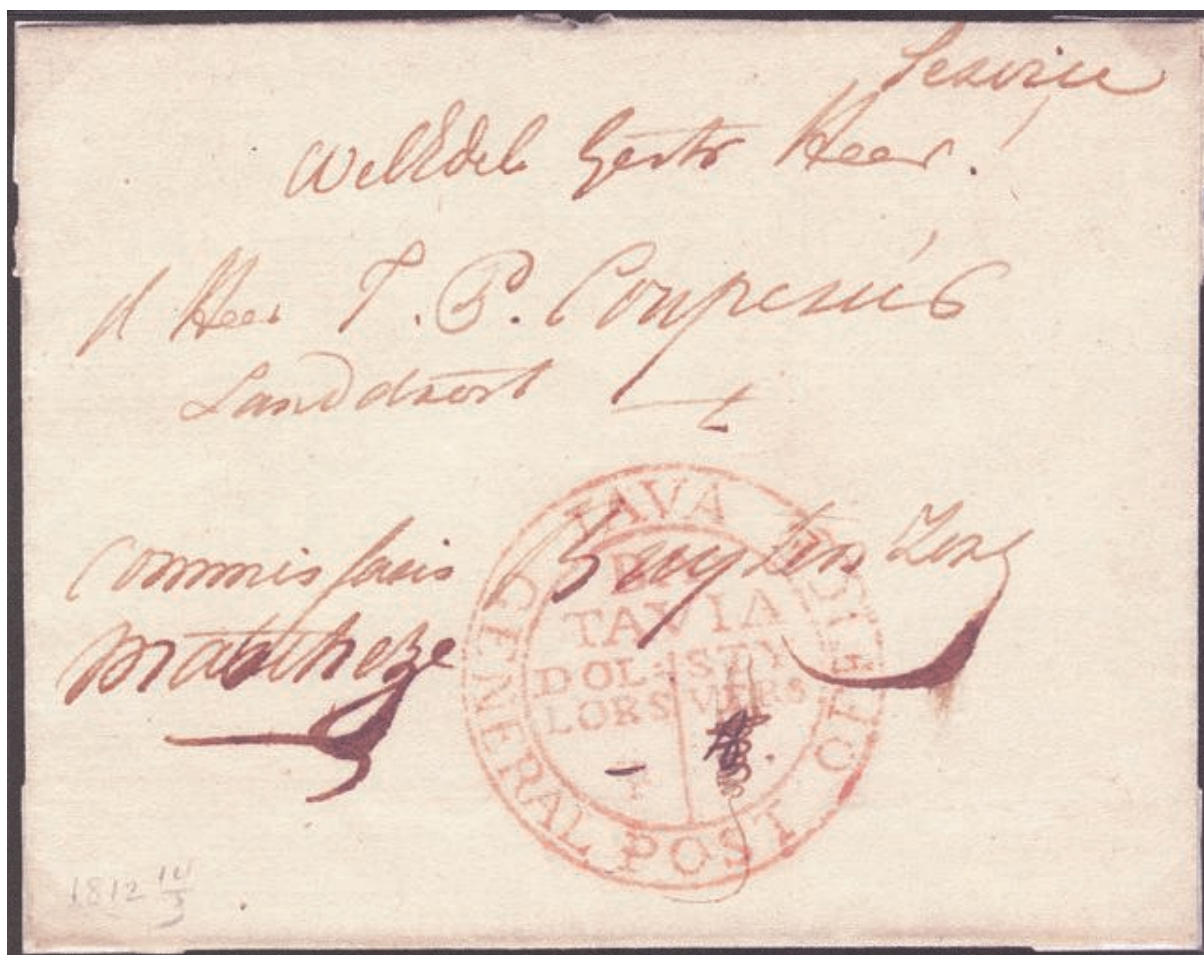 Service
WelEdele Gestr Heer!
d Heer T. P. Couperus
Landdrost
Commissaris Buyten Zorg
JAVA GENERAL POST OFFICE
BA
TAVIA
DOL STY
LORS VERS
1812 14/3